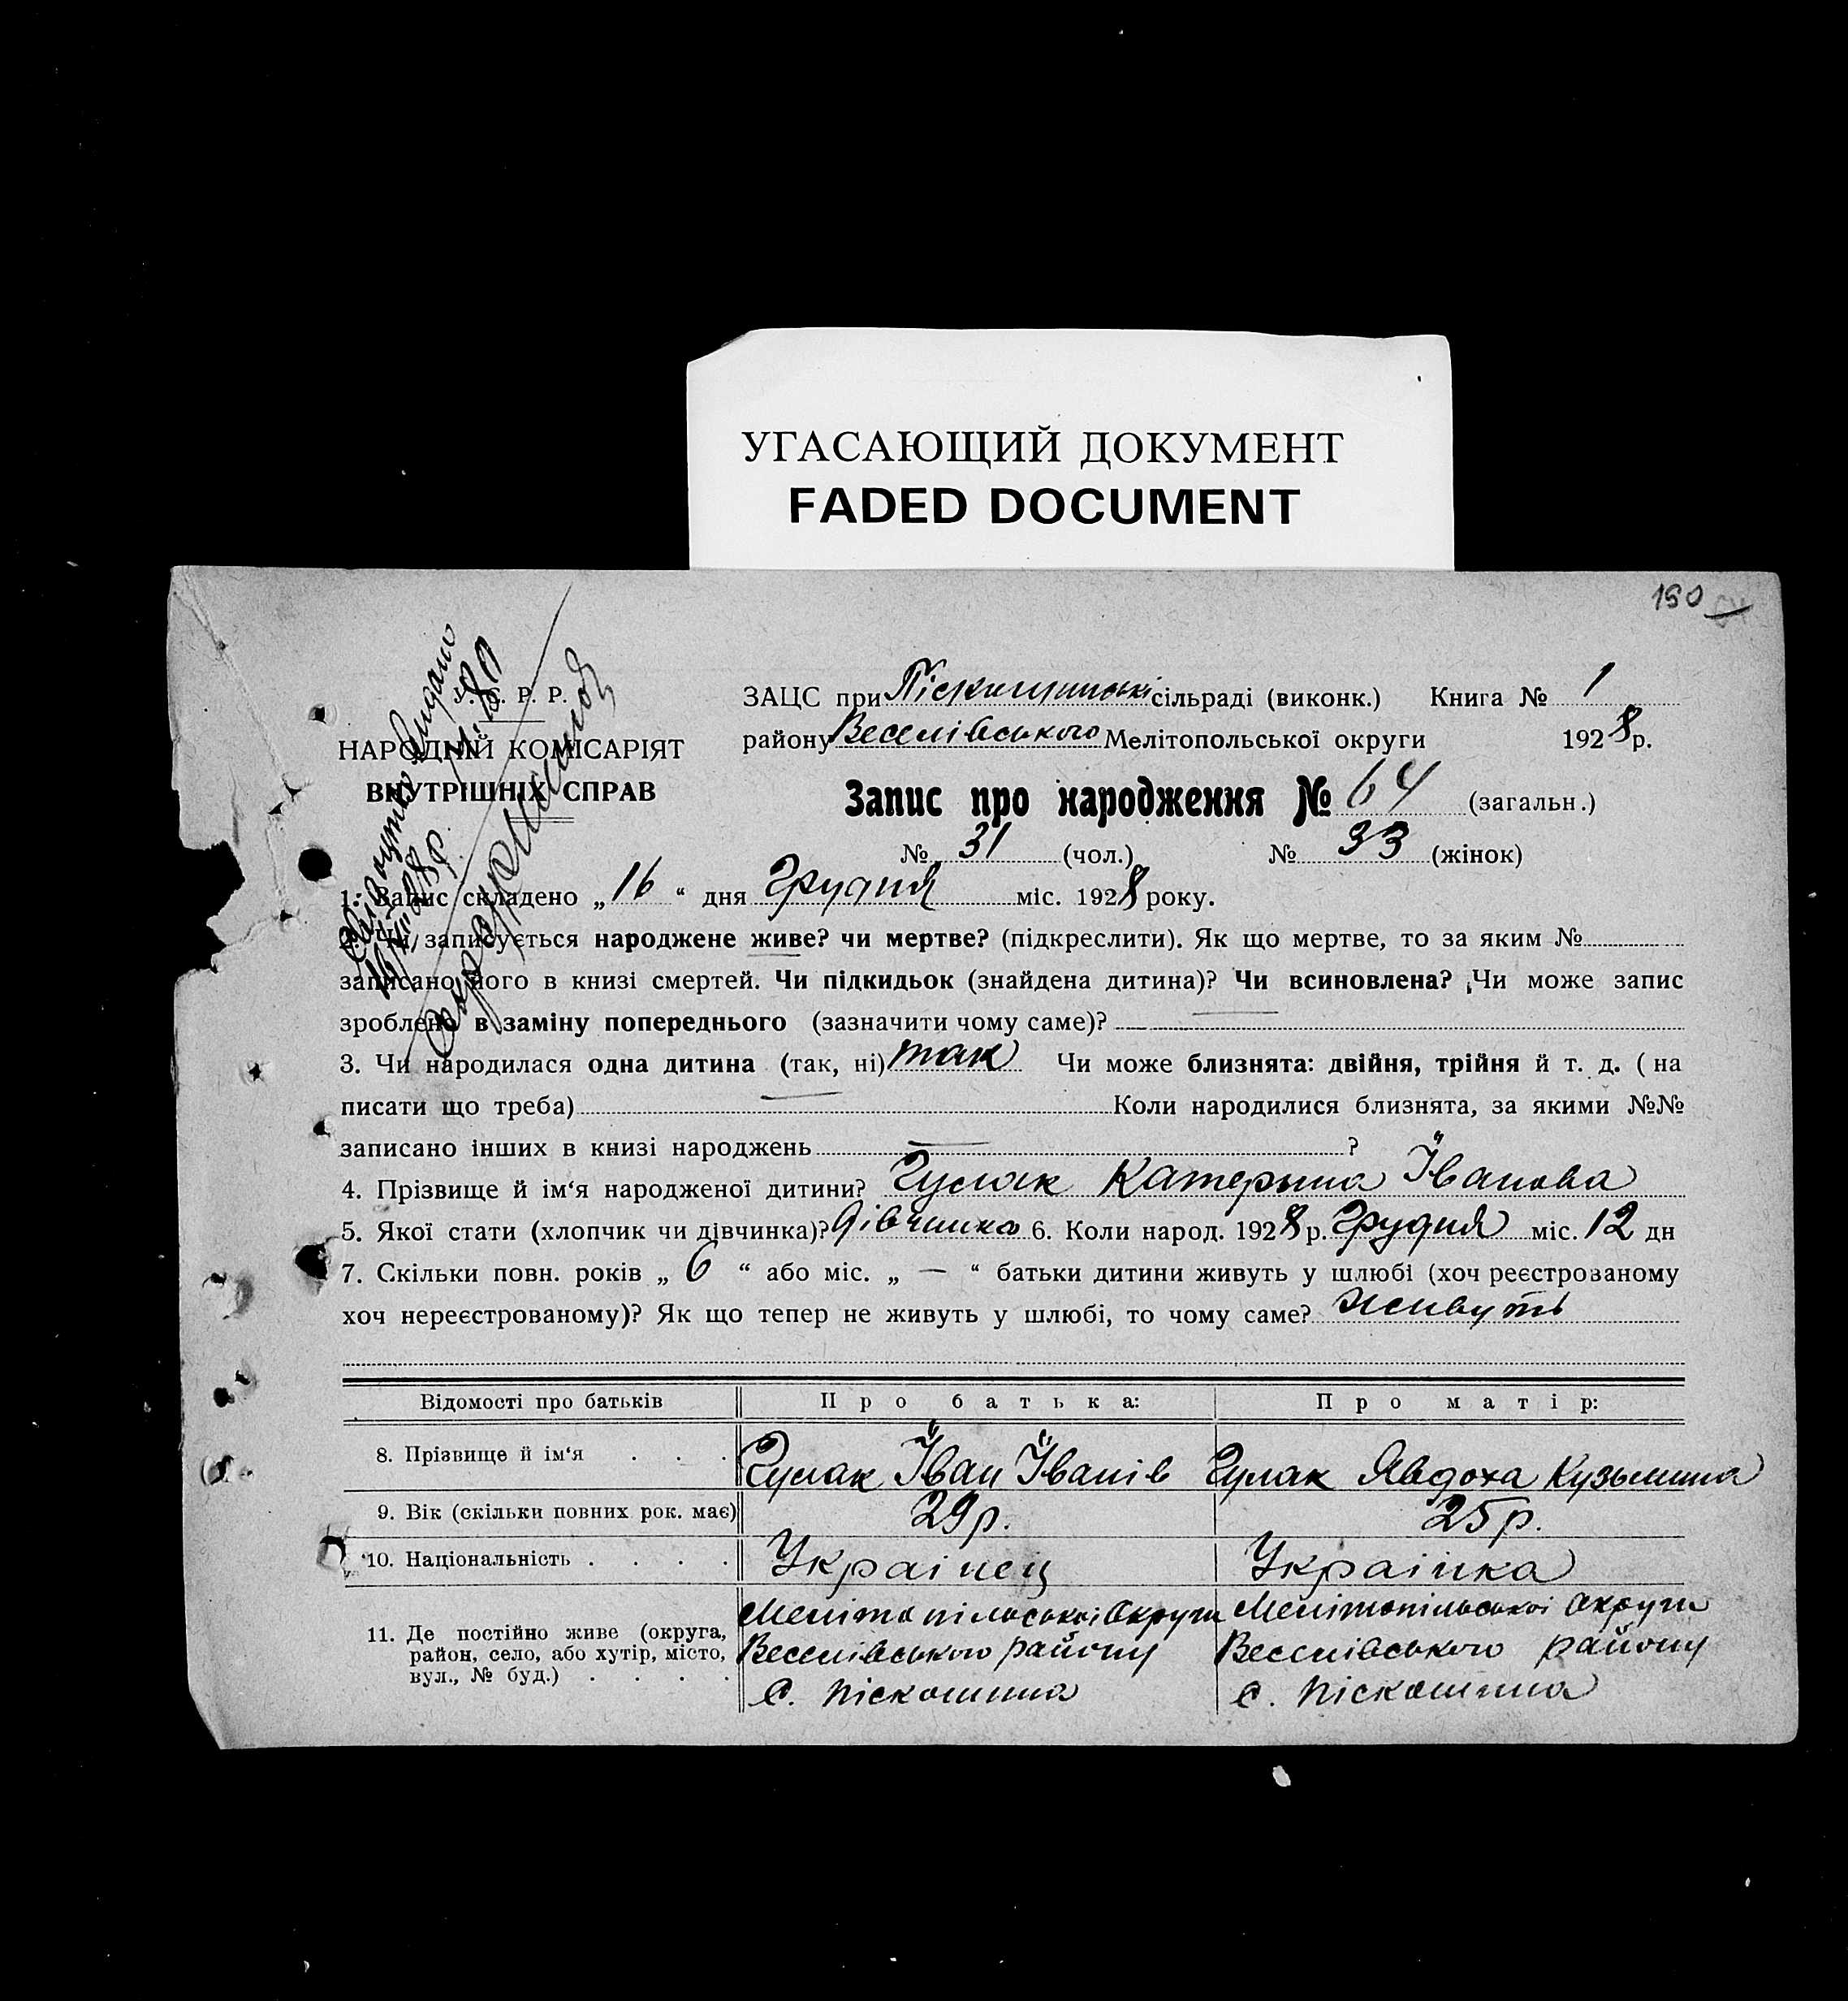 УГАСАЮЩИЙ ДОКУМЕНТ
FADED DOCUMENT
150
У. С. Р. Р.
НАРОДНІЙ КОМІСАРІЯТ
ВНУТРІШНІХ СПРАВ
Видано
ЗАЦС при Піскошинські сільраді (виконк.) Книга № 1
району Веселівського Мелітопольської округи 1928 р.
Запис про народження № 64 (загальн.)
№ 31 (чол.) № 33 (жінок)
1. Запис складено „ 16 “ дня Грудня міс. 1928 року.
2. Чи записується народжене живе? чи мертве? (підкреслити). Як що мертве, то за яким №
записано його в книзі смертей. Чи підкидьок (знайдена дитина)? Чи всиновлена? Чи може запис
зроблено в заміну попереднього (зазначити чому саме)?
3. Чи народилася одна дитина (так, ні) так Чи може близнята: двійня, трійня й т. д. ( на
писати що треба) Коли народилися близнята, за якими №№
записано інших в книзі народжень ?
4. Прізвище й ім‘я народженої дитини? Гулак Катерына Іванова
5. Якої стати (хлопчик чи дівчинка)? дівчинка 6. Коли народ. 1928 р. Грудня міс. 12 дн
7. Скільки повн. років „ 6 “ або міс. „ — “ батьки дитини живуть у шлюбі (хоч реєстрованому
хоч нереєстрованому)? Як що тепер не живуть у шлюбі, то чому саме? живуть
Відомості про батьків Про батька: Про матір:
8. Прізвище й ім‘я . . . Гулак Їван Їванів Гулак Явдоха Кузьмина
9. Вік (скільки повних рок. має) 29 р. 25 р.
10. Національність . . . . Украінец Украінка
11. Де постійно живе (округа, Мелітопільськоі Округи Мелітопільськоі Округи
район, село, або хутір, місто, Веселівського району Веселівського району
вул., № буд.) . . . . с. Піскошина с. Піскошина